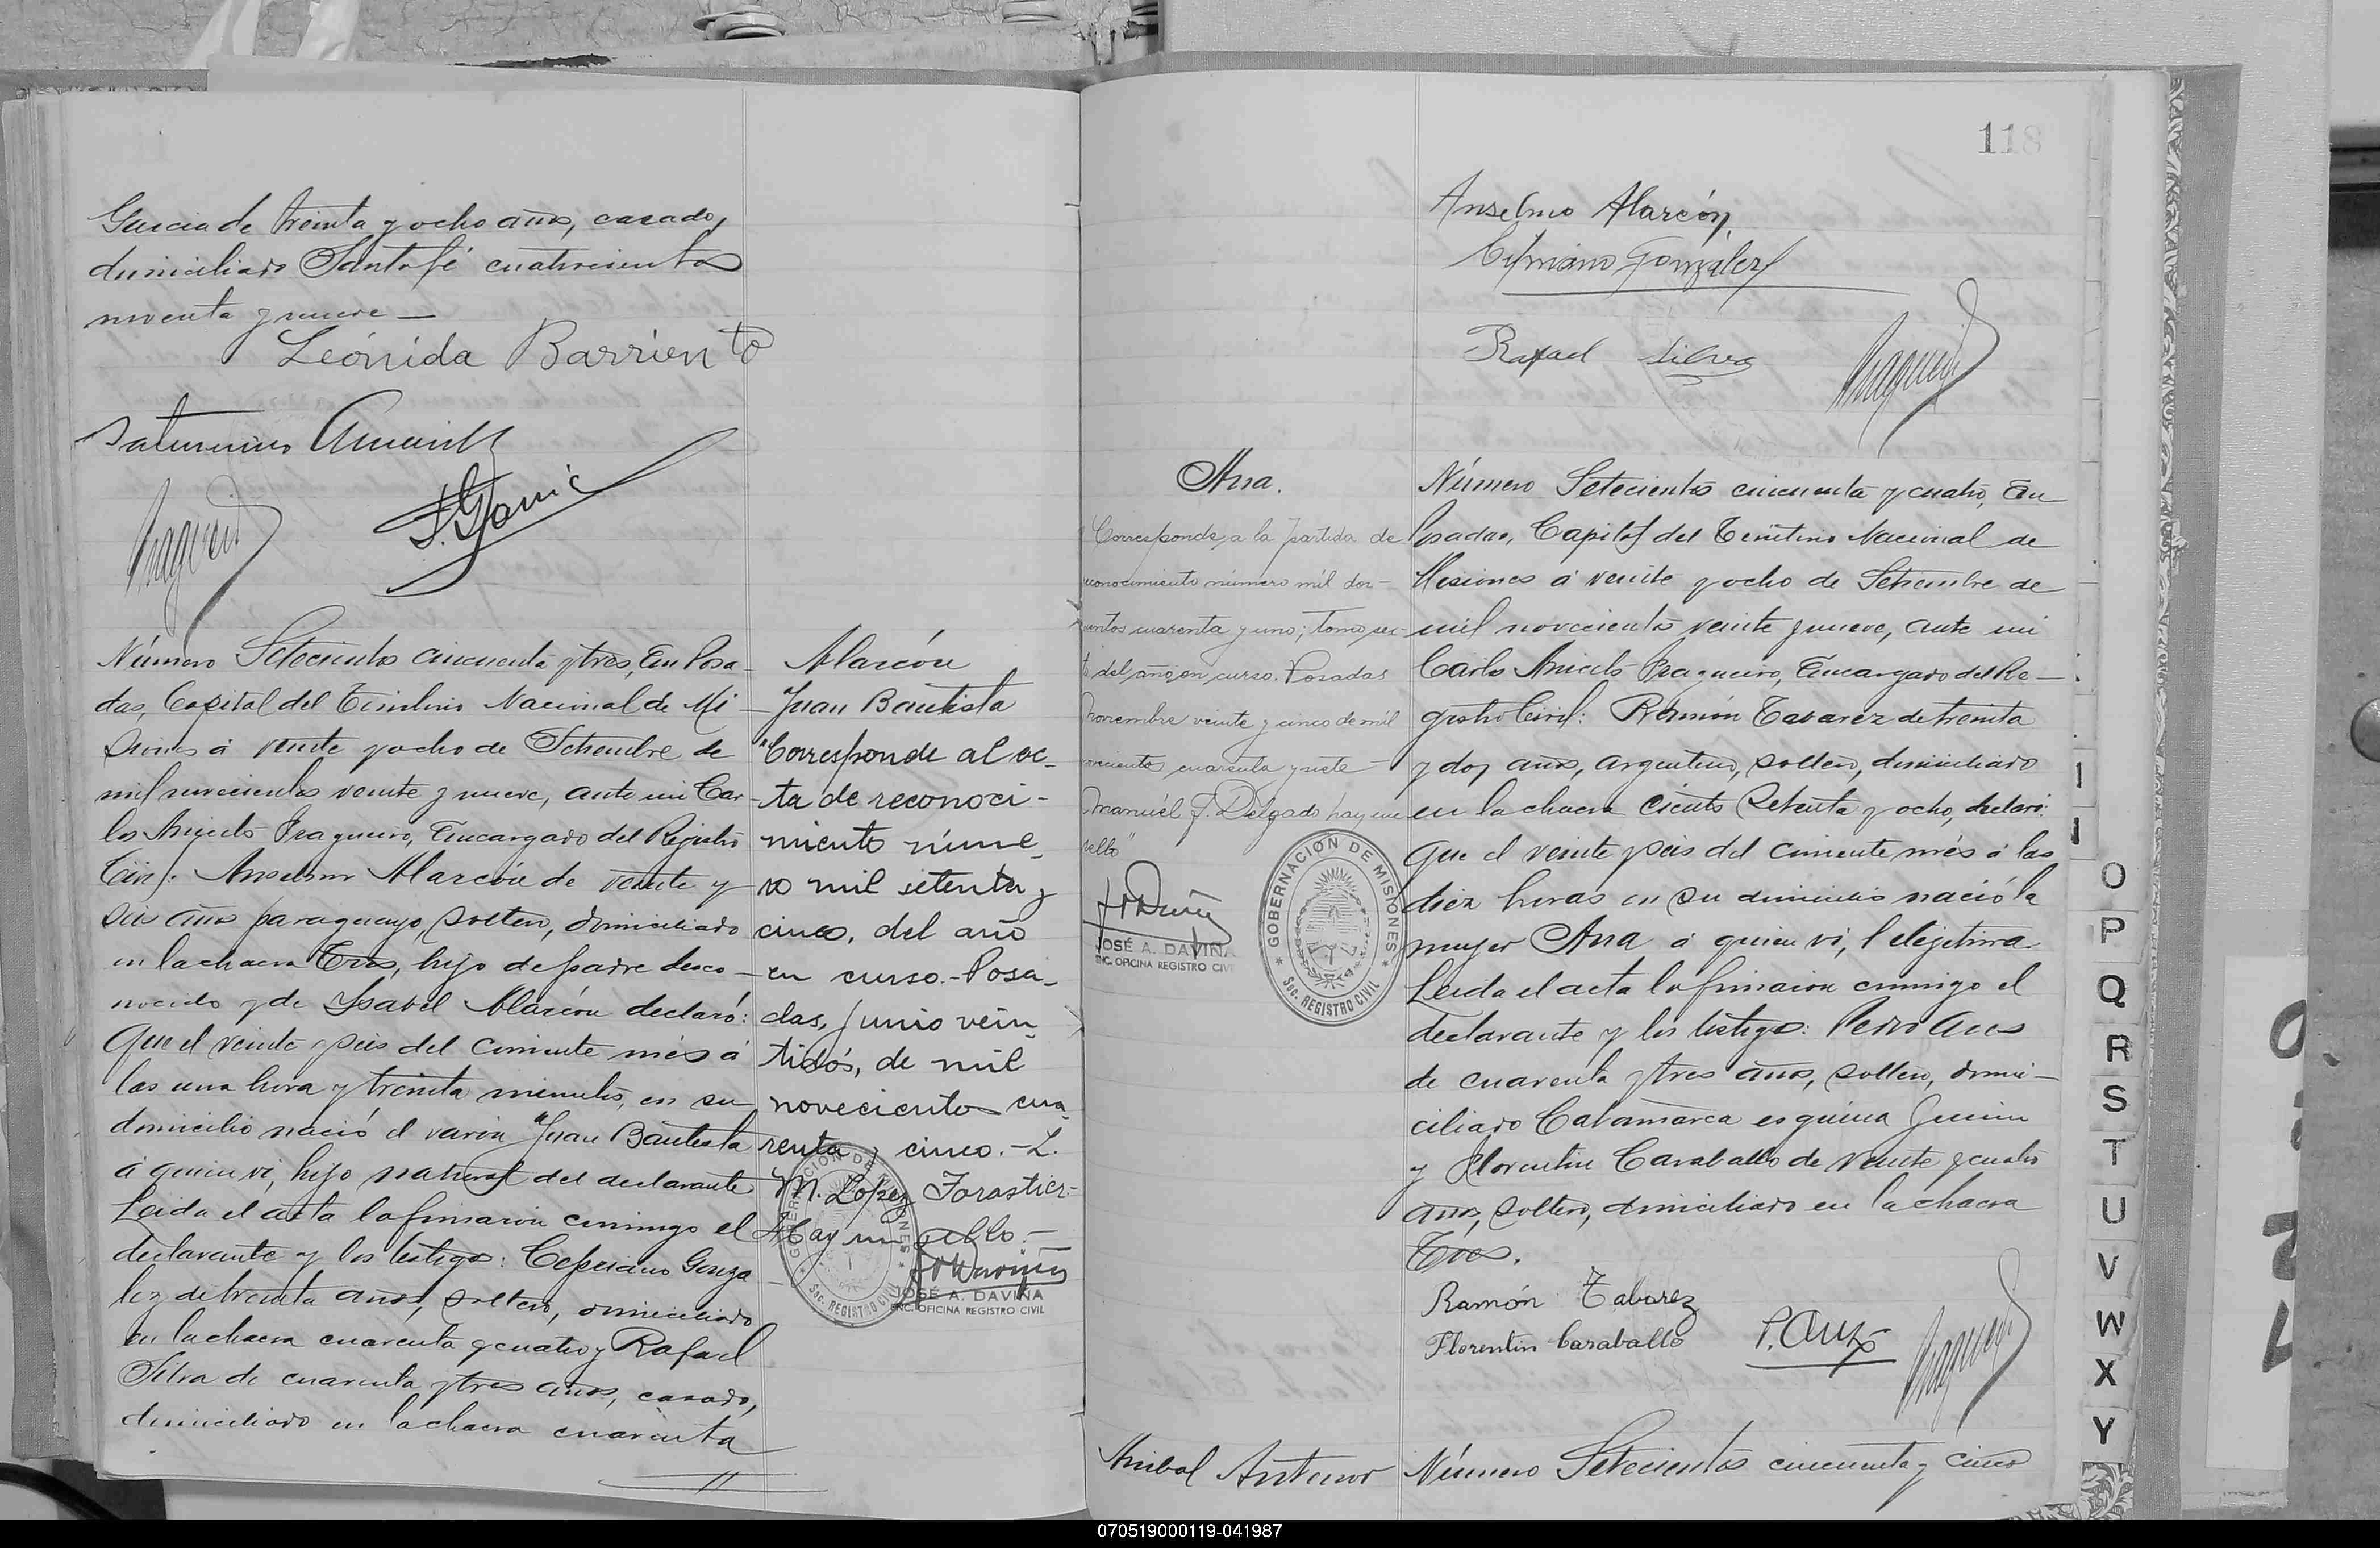 Garcia de treinta y ocho años, casado,
domiciliado Santa fé cuatrocientos
noventa y nueve —
Leónida Barriento
Saturnino
Número Setecientos cincuenta y tres, En Posa-
das, Capital del Territorio Nacional de Mi-
siones á veinte y ocho de Setiembre de
mil novecientos veinte y nueve, ante mi Car-
los Aniceto Fragueiro, Encargado del Registro
Civil: Anselmo Alarcón de veinte y
seis años paraguayo, soltero, domiciliado
en la chacra Tres, hijo de padre desco-
nocido y de Ysabel Alarcón declaró:
Que el veinte y seis del corriente més á
las una hora y treinta minutos, en su
domicilio nació el varón "Juan Bautista
á quien vi, hijo natural del declarante
Leida el acta la firmaron conmigo el
declarante y los testigos: Cepriano Gonza
lez de treinta años, soltero, domiciliado
en la chacra cuarenta y cuatro y Rafael
Silva de cuarenta y tres años, casado,
domiciliado en la chacra cuarenta
Alarcón
Juan Bautista
"Corresponde al ac-
ta de reconoci-
miento núme-
ro mil setenta y
cinco, del año
en curso.- Posa-
das, Junio vein
tidós, de mil
novecientos cua
renta y cinco.- L.
M. Lopez Forastier-
Hay un sello.-
GOBERNACIÓN DE MISIONES
Sec. REGISTRO CIVIL
JOSÉ A. DAVIÑA
ENC. OFICINA REGISTRO CIVIL
118
Anselmo Alarcón
Cipriano González
Rafael Silva
Ana.
Corresponde a la partida de
reconocimiento número mil dos-
cientos cuarenta y uno; tomo sex-
to del año en curso. Posadas
Noviembre veinte y cinco de mil
novecientos cuarenta y siete
Manuél J. Delgado hay un
sello"
JOSÉ A. DAVIÑA
ENC. OFICINA REGISTRO CIVIL
GOBERNACIÓN DE MISIONES
Sec. REGISTRO CIVIL
Número Setecientos cincuenta y cuatro, En
Posadas, Capital del Territorio Nacional de
Misiones á veinte y ocho de Setiembre de
mil novecientos veinte y nueve, ante mi
Carlos Aniceto Fragueiro, Encargado del Re-
gistro Civil: Ramón Tabarez de treinta
y dos años, argentino, soltero, domiciliado
en la chacra ciento setenta y ocho, declaró:
Que el veinte y seis del corriente més á las
diez horas en su domicilio nació la
mujer Ana á quien vi,
Leida el acta la firmaron conmigo el
declarante y los testigos: Pedro
de cuarenta y tres años, soltero, domi-
ciliado Catamarca esquina Junin
y Florentin Caraballo de veinte y cuatro
años, soltero, domiciliado en la chacra
Tres.
Ramón Tabarez
Florentin Caraballo
Anibal Antenor
Número Setecientos cincuenta y cinco
O
P
Q
R
S
T
U
V
W
X
Y
070519000119-041987